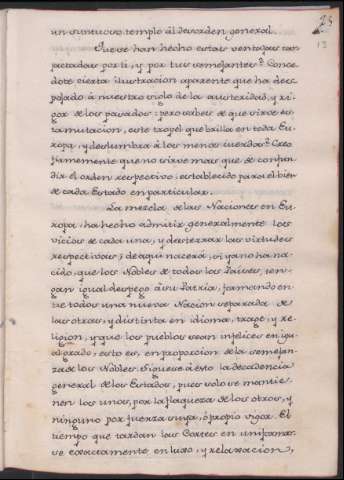 23
13
un suntuoso templo al desorden general.
Que se han hecho estas ventajas tan
jactadas por ti, y por tus semejantes? Conce-
dote cierta ilustracion aparente que ha des-
pojado à nuestro siglo de la austeridad, y ri-
gor de los pasados: pero sabes de que sirve es-
ta mutacion, este tropel que brilla en toda Eu-
ropa, y deslumbra à los menos cuerdos? Creo
firmemente que no sirve mas que de confun-
dir el orden respectivo, establecido para el bien
de cada Estado en particular.
La mezcla de las Naciones en Eu-
ropa, ha hecho admitir generalmente los
vicios de cada una, y desterrar las virtudes
respectivas; de aqui nacerà, si ya no ha na-
cido, que los Nobles de todos los Paises, ten-
gan igual despego à su Patria, formando en-
tre todos una nueva Nacion separada de
las otras, y distinta en idioma, trage, y re-
ligion, y que los pueblos sean infelices en igu-
al grado; esto es, en proporcion de la semejan-
za de los Nobles. Siguese à esto la decadencia
general de los Estados, pues solo se mantie-
nen los unos, por la flaqueza de los otros, y
ninguno por fuerza suya, ò propio vigor. El
tiempo que tardan las Cortes en uniformar-
se exactamente en luxo, y relaxacion,